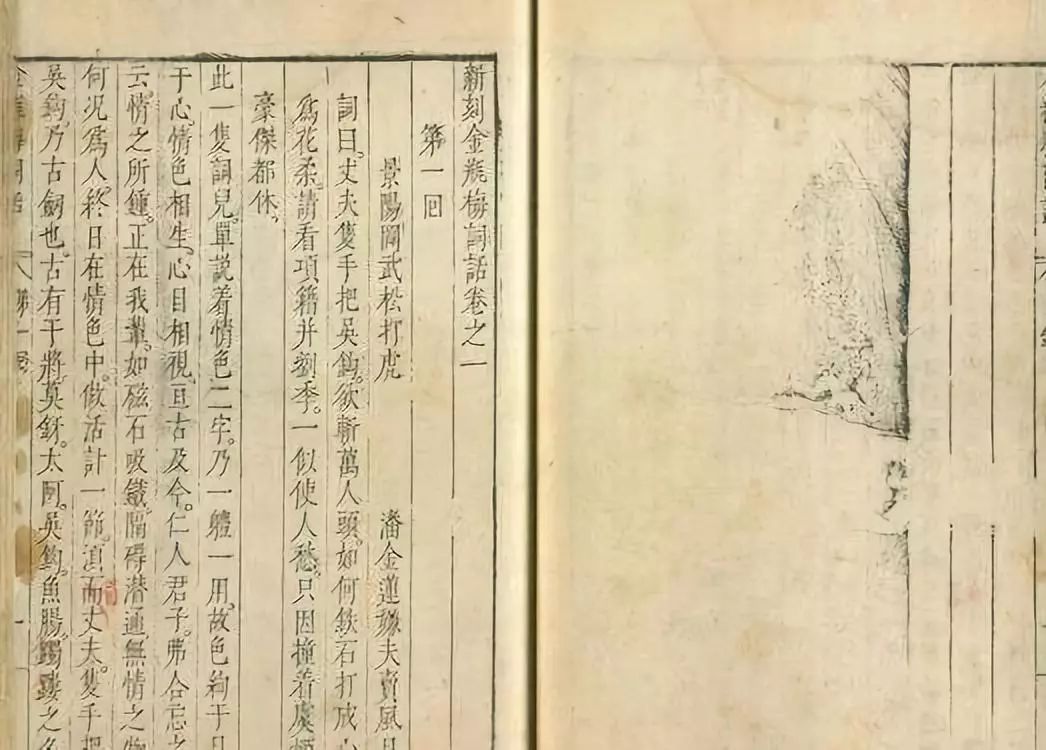 新刻金瓶梅詞話卷之一
第一回
景陽岡武松打虎　潘金蓮嫌夫賣風月
詞曰。丈夫隻手把吳鈎。欲斬萬人頭。如何鉄石打成心
爲花柔。請看項籍并劉季。一似使人愁。只因撞着虞姬
豪傑都休。
此一隻詞兒。單説着情色二字。乃一體一用。故色絢于目
于心。情色相生。心目相視。亘古及今。仁人君子。弗合忘之
云。情之所鍾。正在我輩。如磁石吸鐵。隔碍潛通。無情之物
何况爲人。終日在情色中。做活計一節。湏而丈夫隻手把
吳鈎。乃古劒也。古有干將。莫鋣。太阿。吳鈎。魚腸。钃鏤之名